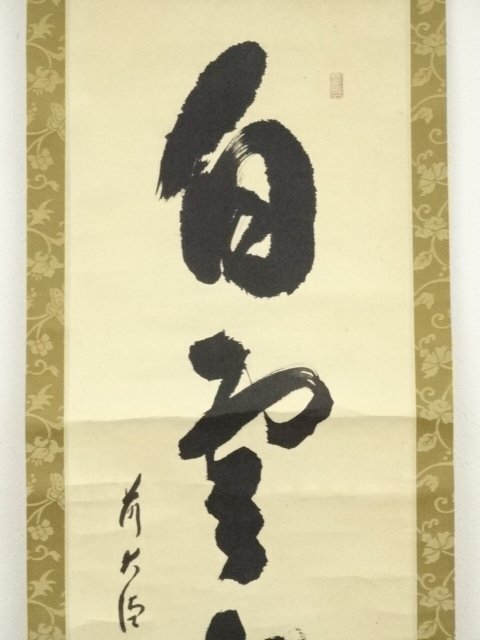 白雲
前大徳